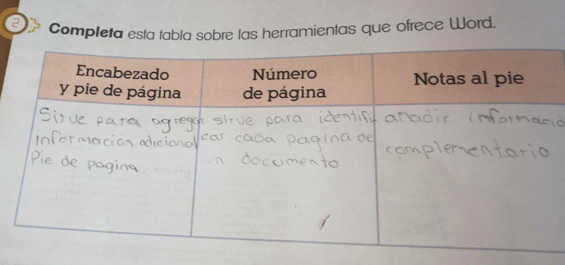 2 Completa esta tabla sobre las herramientas que ofrece Word.
Encabezado
y pie de página
Número
de página
Notas al pie
Sirve para agregar
información adicional
Pie de pagina
sirve para identifi
car cada pagina de
un documento
anadir informació
complementario